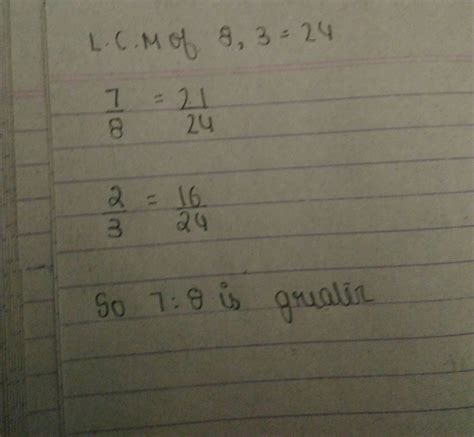 L.C.M of 8, 3 = 24
7/8 = 21/24
2/3 = 16/24
So 7:8 is greater